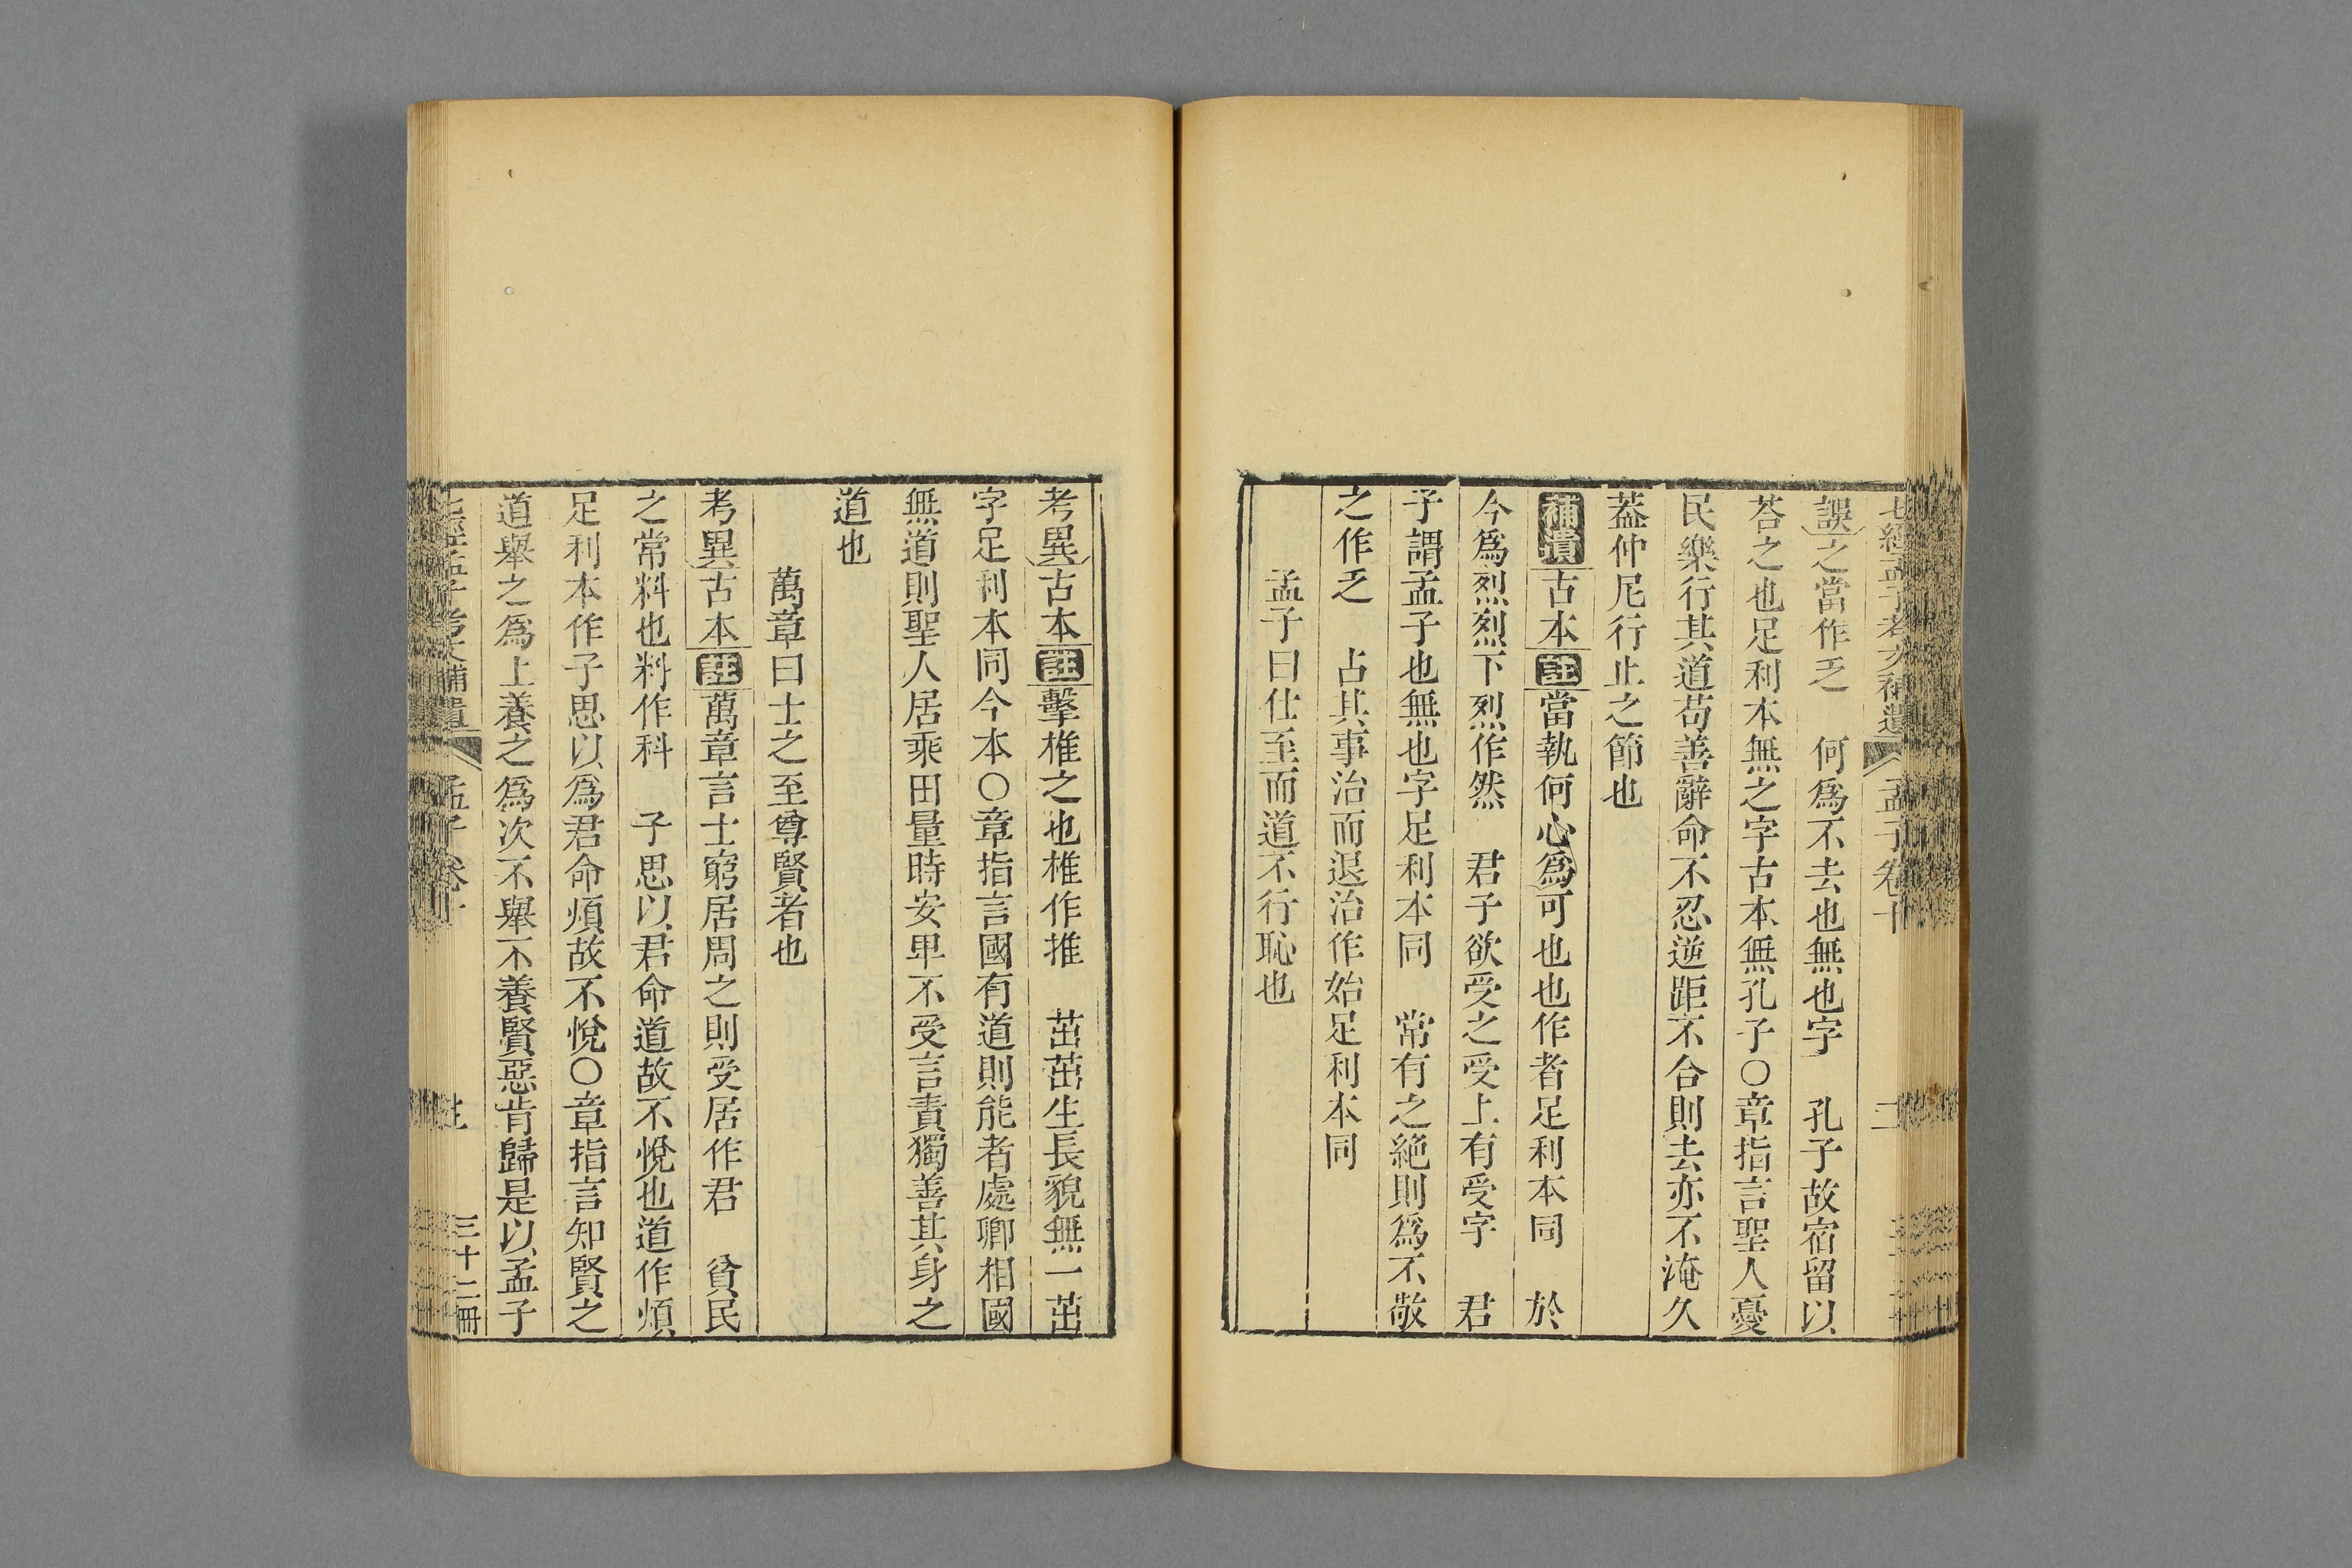 七經孟子考文補遺 孟子卷十
誤之當作乏 何爲不去也無也字 孔子故宿留以
荅之也足利本無之字古本無孔子○章指言聖人憂
民樂行其道苟善辭命不忍逆距不合則去亦不淹久
葢仲尼行止之節也
補遺古本註當執何心爲可也也作者足利本同 於
今爲烈烈下烈作然 君子欲受之受上有受字 君
子謂孟子也無也字足利本同 常有之絶則爲不敬
之作乏 占其事治而退治作始足利本同
孟子曰仕至而道不行恥也
考異古本註擊椎之也椎作推 茁茁生長貌無一茁
字足利本同今本○章指言國有道則能者處卿相國
無道則聖人居乘田量時安卑不受言責獨善其身之
道也
萬章曰士之至尊賢者也
考異古本註萬章言士窮居周之則受居作君 貧民
之常料也料作科 子思以君命道故不悅也道作煩
足利本作子思以爲君命煩故不悅○章指言知賢之
道舉之爲上養之爲次不舉不養賢惡肯歸是以孟子
七經孟子考文補遺 孟子卷十 三十二冊